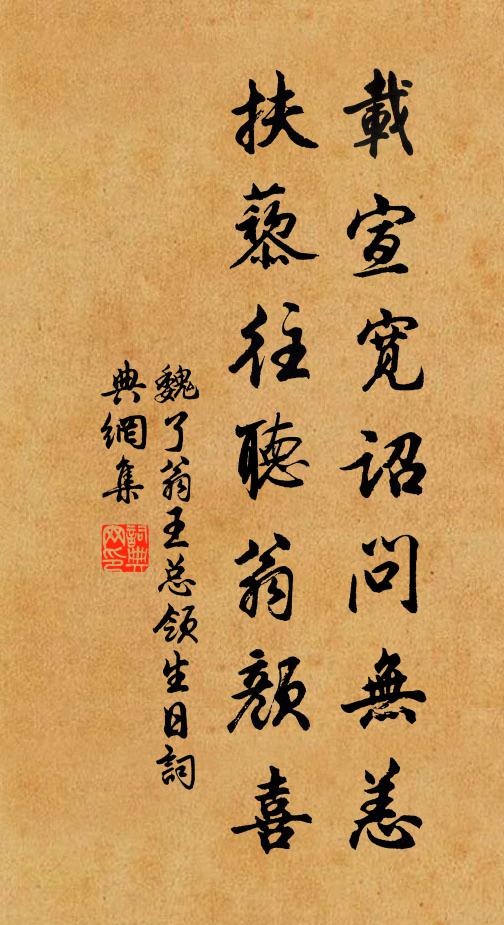 載宣寬詔問無恙
扶藜往聽翁顏喜
魏了翁王总領生日詞
典網集
詞典
网印